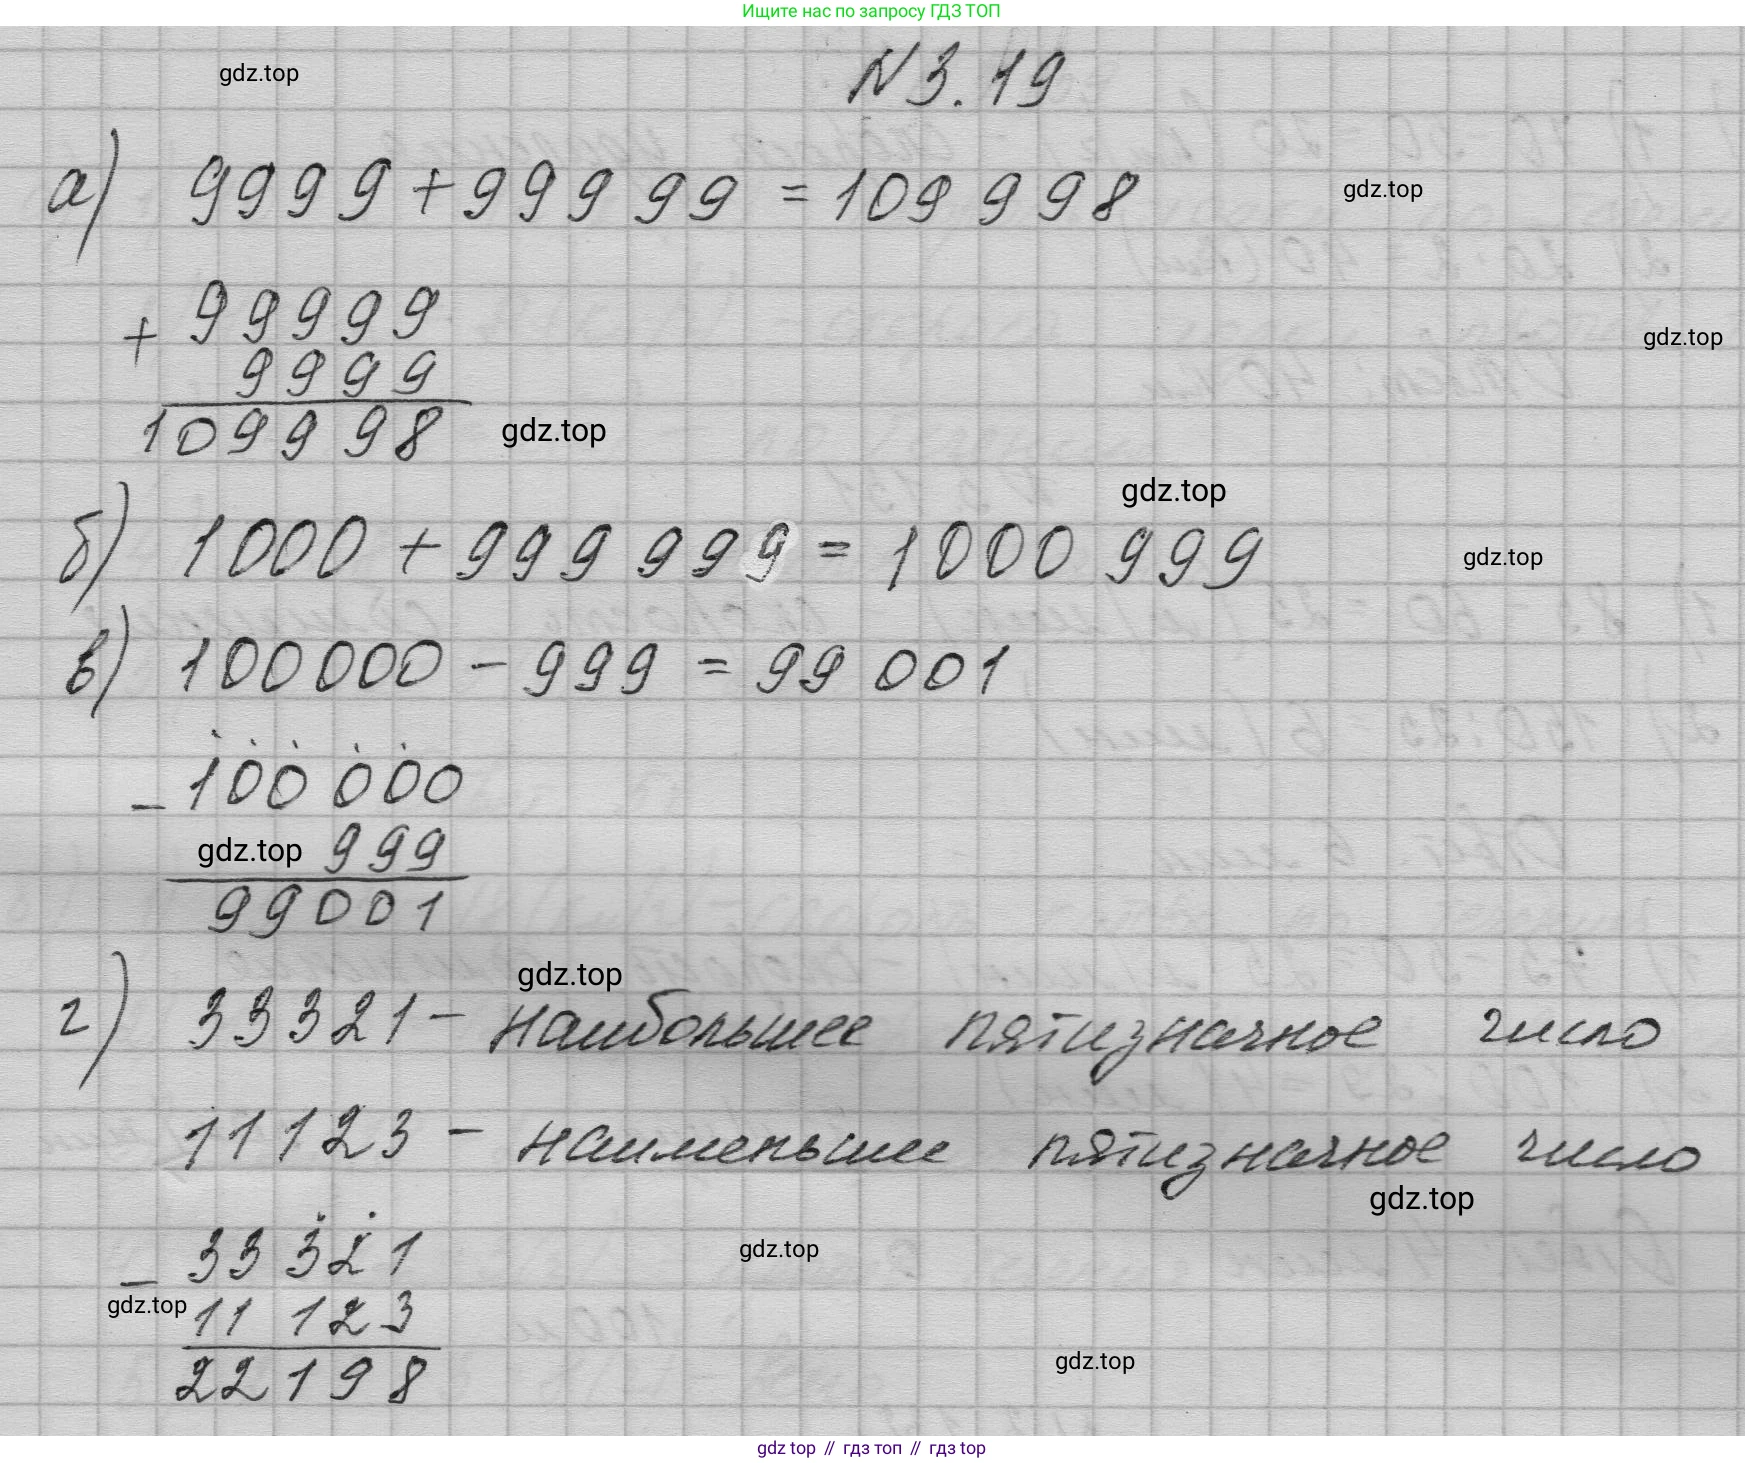 Ищите нас по запросу ГДЗ ТОП
N 3.19
gdz.top
а) 9999 + 99999 = 109 998
gdz.top
+ 99999
gdz.top
9999
109998
gdz.top
gdz.top
б) 1000 + 999 999 = 1000 999
gdz.top
в) 100000 - 999 = 99 001
- 100 000
gdz.top 999
99001
gdz.top
г) 33321 - наибольшее пятизначное число
11123 - наименьшее пятизначное число
gdz.top
- 33 321
gdz.top
gdz.top 11 123
22198
gdz.top
gdz top // гдз топ // гдз top